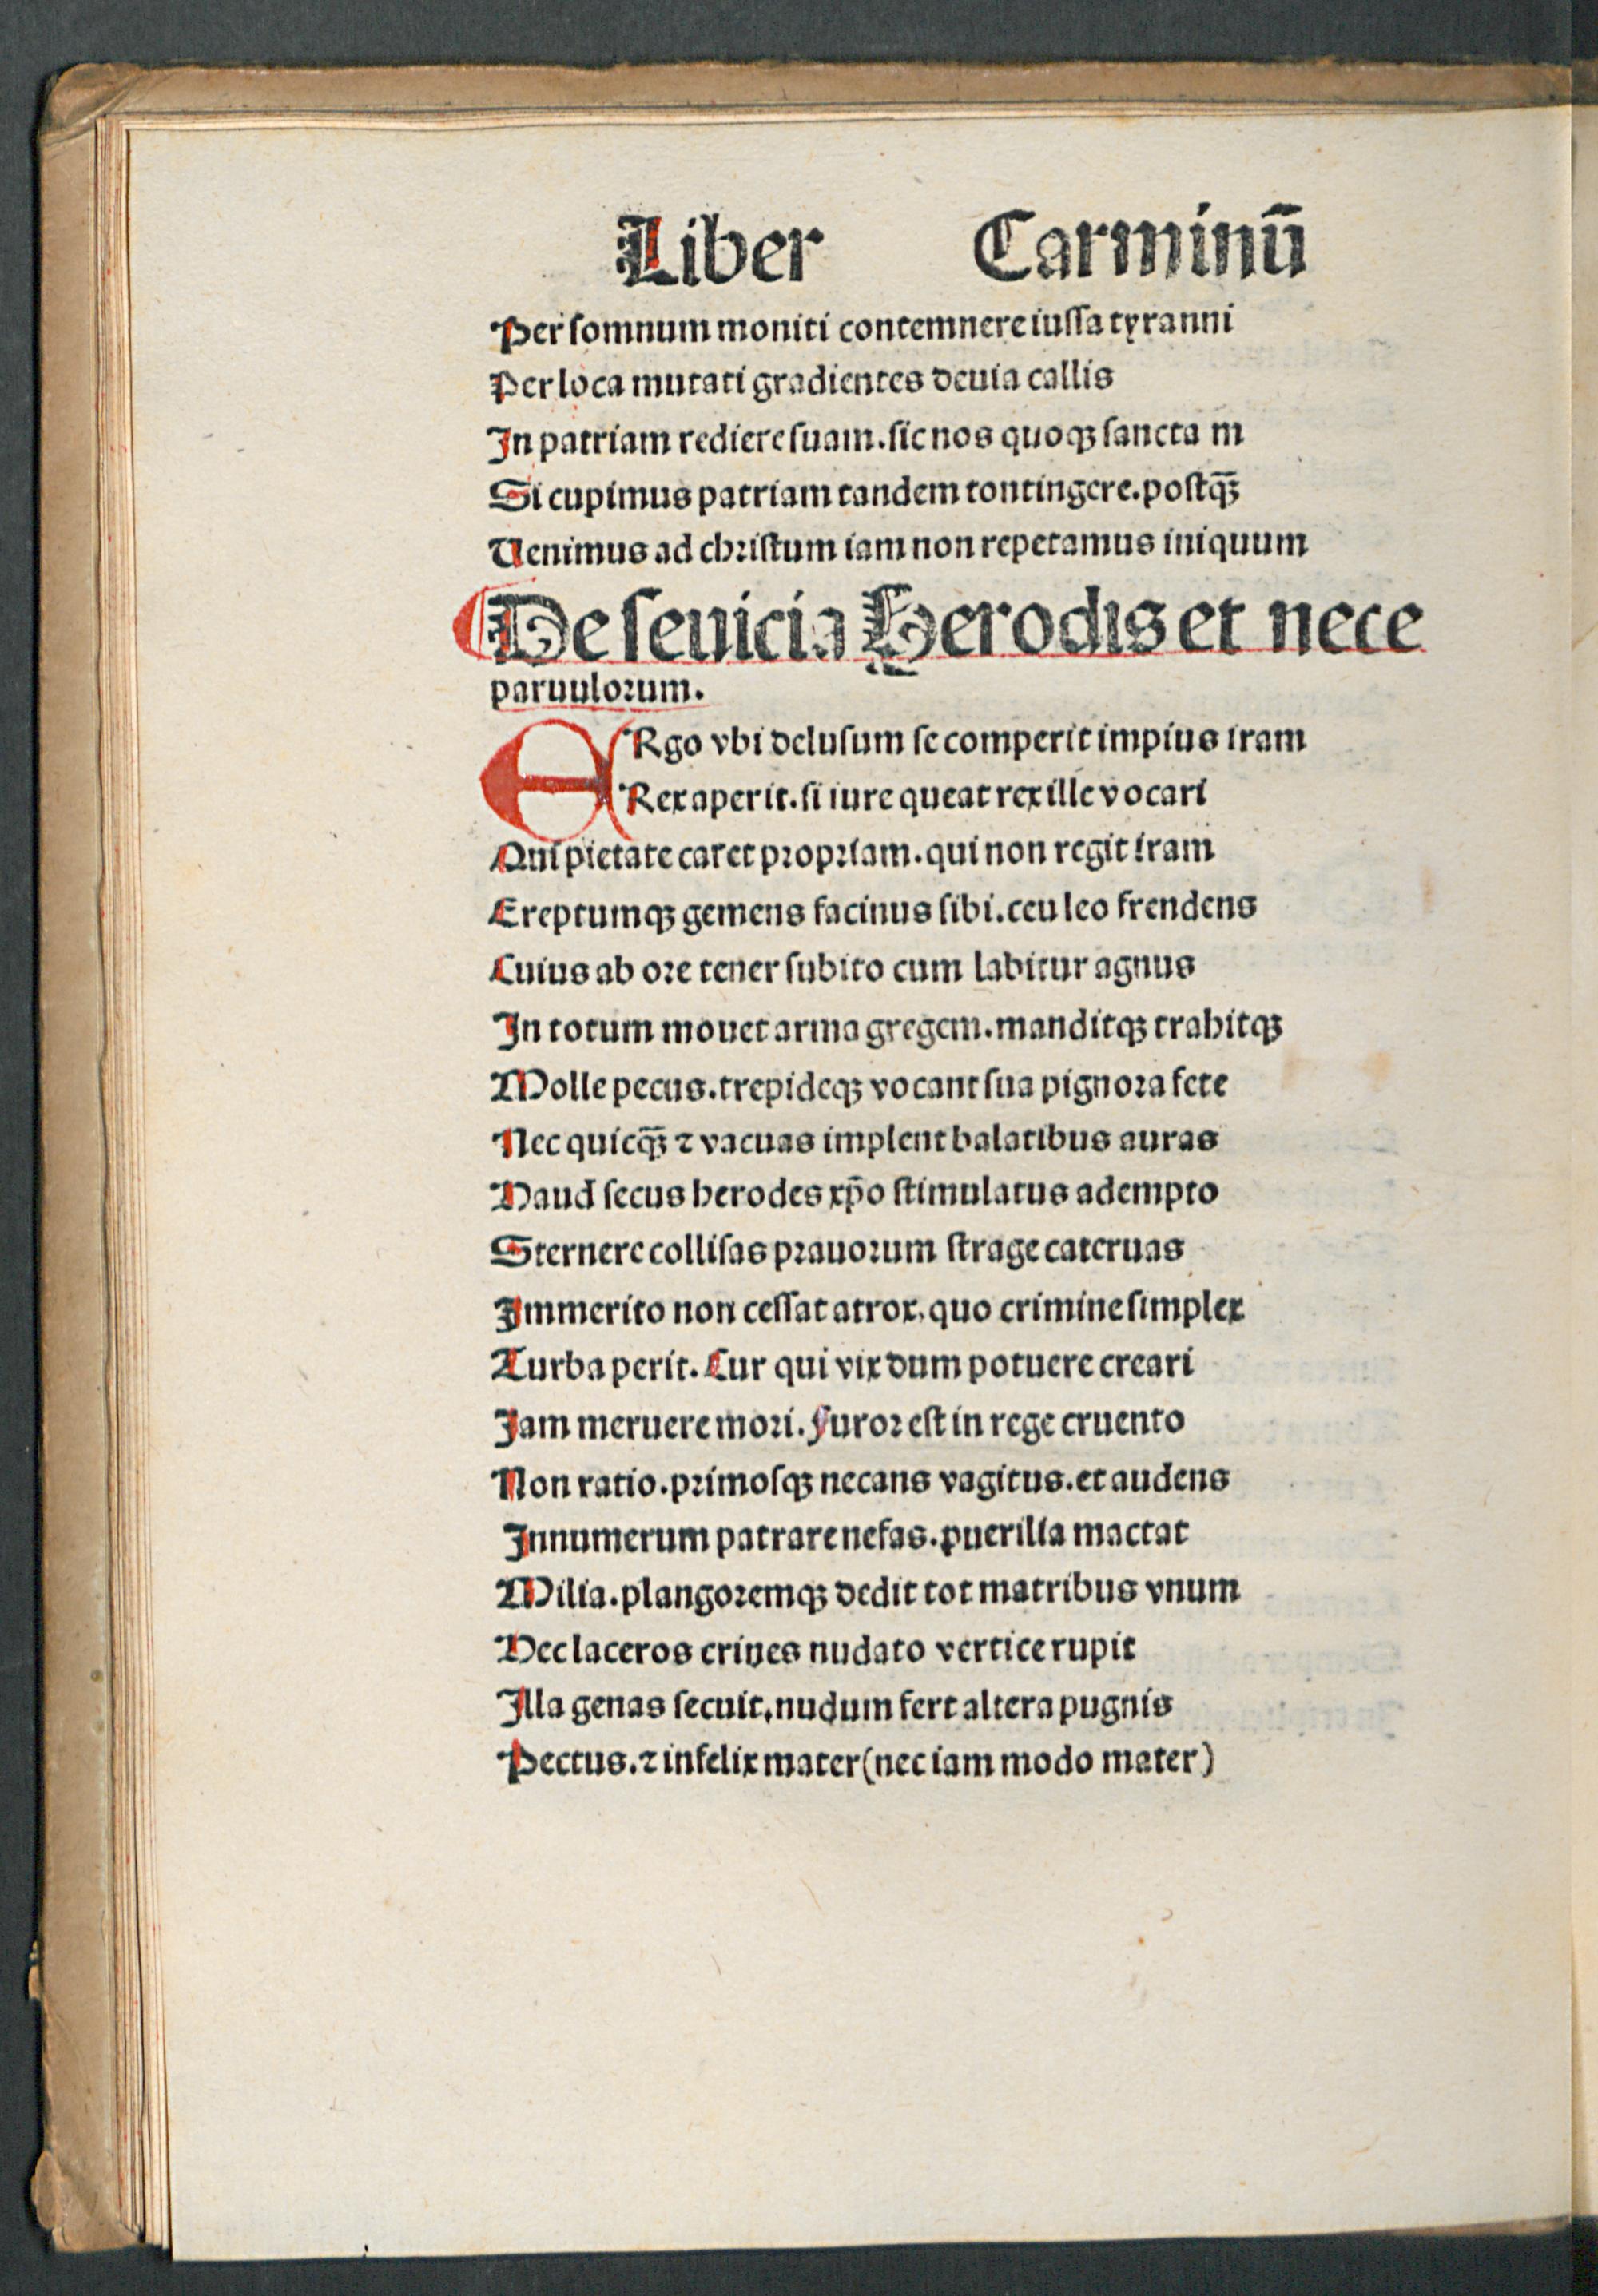 Liber Carminū
Per ſomnum moniti contemnere iuſſa tyranni
Per loca mutati gradientes deuia callis
In patriam rediere ſuam. ſic nos quoqꝫ ſancta m
Si cupimus patriam tandem tontingere. poſtq̄ꝫ
Uenimus ad chriſtum iam non repetamus iniquum
De ſeuicia Herodis et nece
paruulorum.
ERgo vbi deluſum ſe comperit impius iram
Rex aperit. ſi iure queat rex ille vocari
Qui pietate caret propriam. qui non regit iram
Ereptumqꝫ gemens facinus ſibi. ceu leo frendens
Cuius ab ore tener ſubito cum labitur agnus
In totum mouet arma gregem. manditqꝫ trahitqꝫ
Molle pecus. trepideqꝫ vocant ſua pignora fete
Nec quicq̄ꝫ ⁊ vacuas implent balatibus auras
Haud ſecus herodes xp̄o ſtimulatus adempto
Sternere colliſas prauorum ſtrage cateruas
Immerito non ceſſat atrox, quo crimine ſimplex
Turba perit. Cur qui vix dum potuere creari
Jam meruere mori. Furor eſt in rege cruento
Non ratio. primoſqꝫ necans vagitus. et audens
Innumerum patrare nefas. puerilia mactat
Milia. plangoremqꝫ dedit tot matribus vnum
Hec laceros crines nudato vertice rupit
Illa genas ſecuit, nudum fert altera pugnis
Pectus. ⁊ infelix mater (nec iam modo mater)